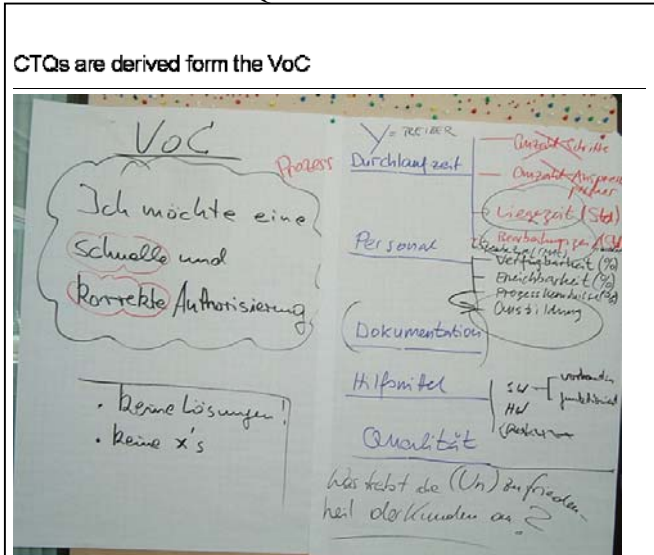 CTQs are derived form the VoC
VoC
Ich möchte eine
schnelle und
korrekte Authorisierung
• keine Lösungen!
• keine x's
Prozess
Y = TREIBER
Durchlaufzeit
Anzahl Schritte
Anzahl Ansprech
partner
Liegezeit (Std)
Personal
Bearbeitungszeit (Std)
Verfügbarkeit (%)
Erreichbarkeit (%)
Prozesskenntnisse (%)
Ausbildung
Dokumentation
Hilfsmittel
SW
vorhanden
funktioniert
HW
Qualität
Was treibt die (Un)zufrieden-
heit der Kunden an?